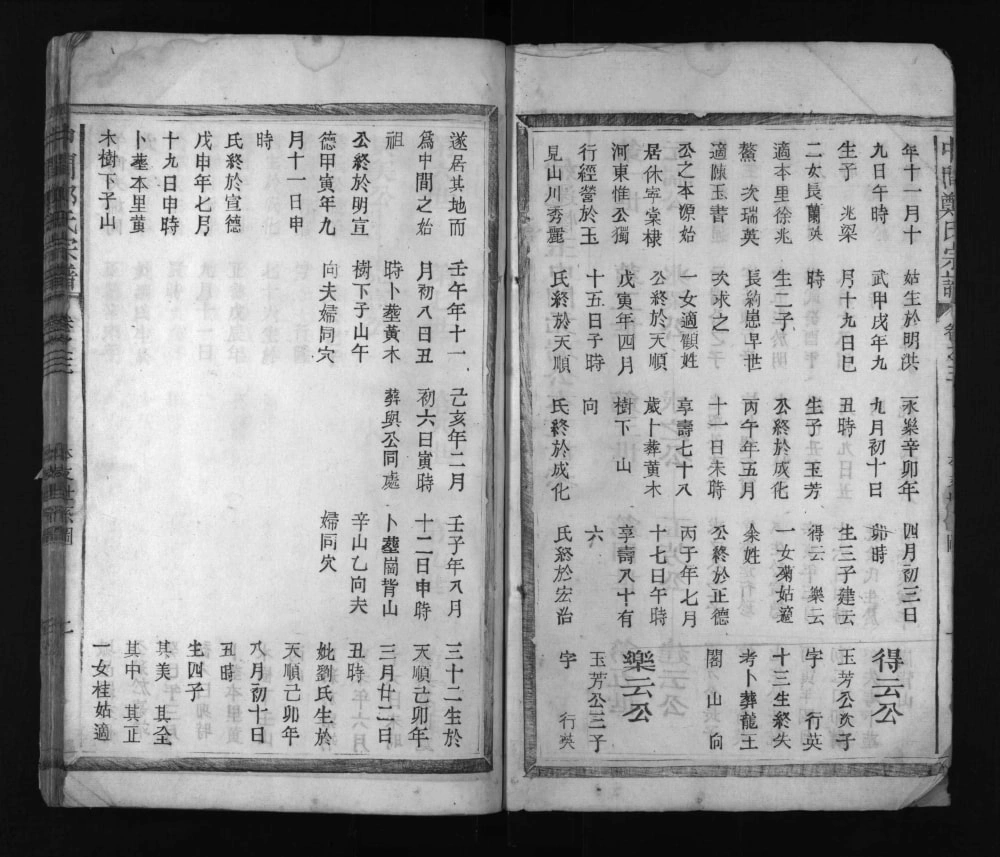 中間鄭氏宗譜
年十一月十
九日午時
生子 兆梁
二女長蘭英
適本里徐兆
鰲 次瑞英
適陳玉書
公之本源始
居休寧棠棣
河東惟公獨
行經營於玉
見山川秀麗
姑生於明洪
武甲戌年九
月十九日巳
時
生二子
長納崽早世
次求之
一女適顧姓
公終於天順
戊寅年四月
十五日子時
氏終於天順
永樂辛卯年
九月初十日
丑時
生子 玉芳
公終於成化
丙午年五月
十一日未時
享壽七十八
歲卜葬黄木
樹下 山
向
氏終於成化
四月初三日
卯時
生三子建云
得云 樂云
一女菊姑適
余姓
公終於正德
丙子年七月
十七日午時
享壽八十有
六
氏終於宏治
得云公
玉芳公次子
字 行英
十三生終失
考卜葬龍王
閣 山 向
樂云公
玉芳公三子
字 行英
遂居其地而
爲中間之始
祖
公終於明宣
德甲寅年九
月十一日申
時
氏終於宣德
戊申年七月
十九日申時
卜塟本里黄
木樹下子山
壬午年十一
月初八日丑
時卜塟黄木
樹下子山午
向夫婦同穴
己亥年二月
初六日寅時
葬與公同處
壬子年八月
十二日申時
卜塟崗背山
辛山乙向夫
婦同穴
三十二生於
天順己卯年
三月廿二日
丑時
妣劉氏生於
天順己卯年
八月初十日
丑時
生四子
其美 其全
其中 其正
一女桂姑適
中間鄭氏宗譜 卷之三